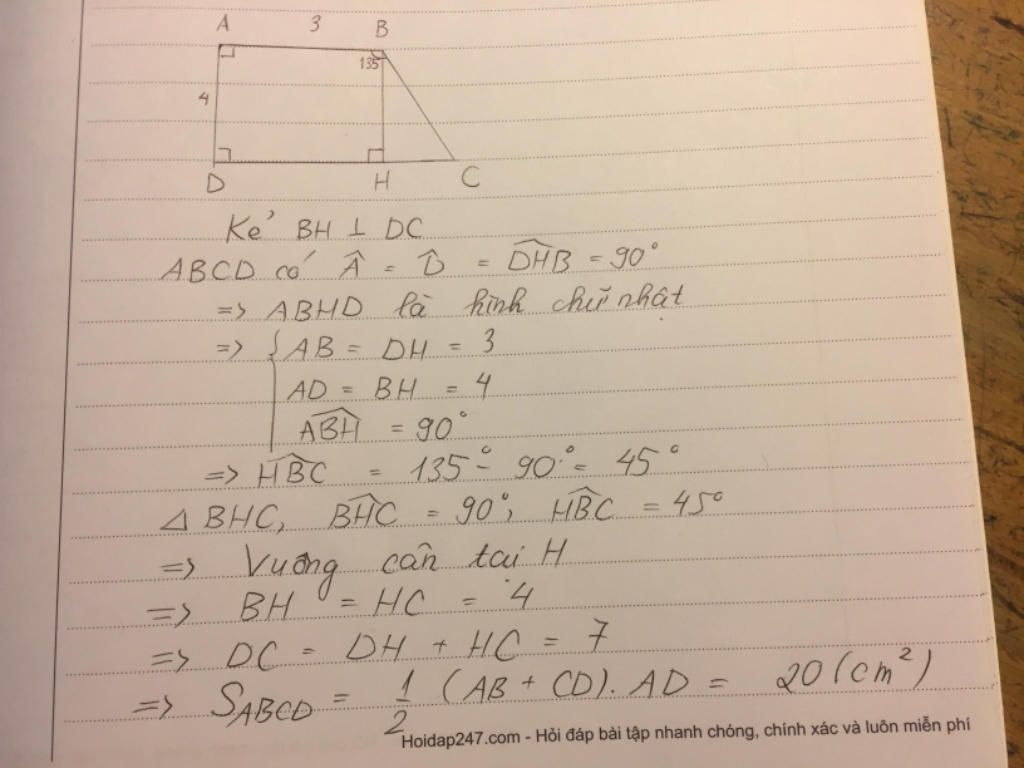 A 3 B
135
4
D H C
Kẻ BH ⊥ DC
ABCD có Â = D̂ = \widehat{DHB} = 90°
=> ABHD là hình chữ nhật
=> { AB = DH = 3
AD = BH = 4
\widehat{ABH} = 90°
=> \widehat{HBC} = 135° - 90° = 45°
△ BHC, \widehat{BHC} = 90°; \widehat{HBC} = 45°
=> Vuông cân tại H
=> BH = HC = 4
=> DC = DH + HC = 7
=> S_{ABCD} = \frac{1}{2} (AB + CD). AD = 20 (cm²)
Hoidap247.com - Hỏi đáp bài tập nhanh chóng, chính xác và luôn miễn phí